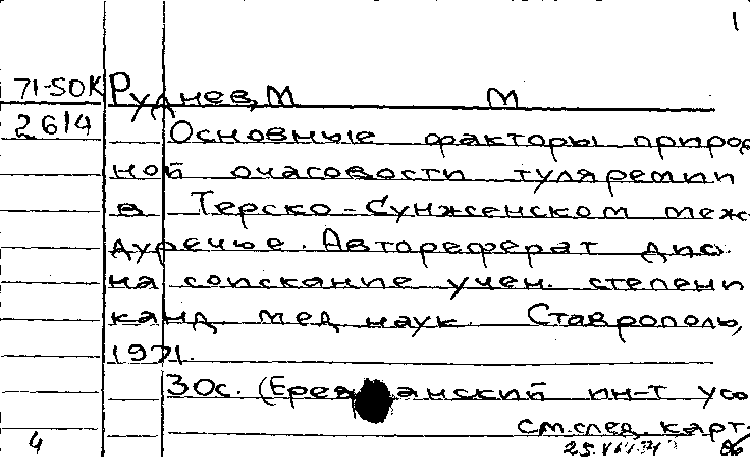 1
71-50К Руднев, М М
2614 Основные факторы природ
ной очаговости туляремии
в Терско-Сунженском меж
дуречье. Автореферат дис.
на соискание учен. степени
канд. мед. наук. Ставрополь,
1971.
30с. (Ере анский ин-т усо
см. след. карт.
4